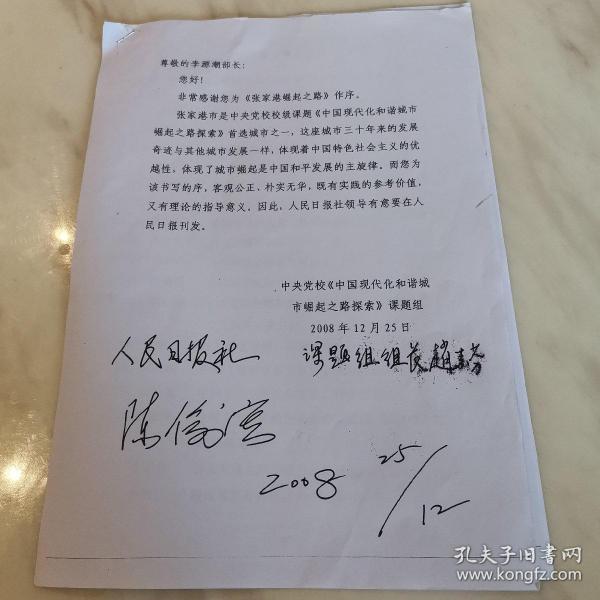 尊敬的李源潮部长：
您好！
非常感谢您为《张家港崛起之路》作序。
张家港市是中央党校校级课题《中国现代化和谐城市
崛起之路探索》首选城市之一，这座城市三十年来的发展
奇迹与其他城市发展一样，体现着中国特色社会主义的优
越性，体现了城市崛起是中国和平发展的主旋律。而您为
该书写的序，客观公正、朴实无华，既有实践的参考价值，
又有理论的指导意义。因此，人民日报社领导有意要在人
民日报刊发。
中央党校《中国现代化和谐城
市崛起之路探索》课题组
2008年12月25日
人民日报社
课题组组长赵
陈俊宏
2008 25/12
孔夫子旧书网
www.kongfz.com